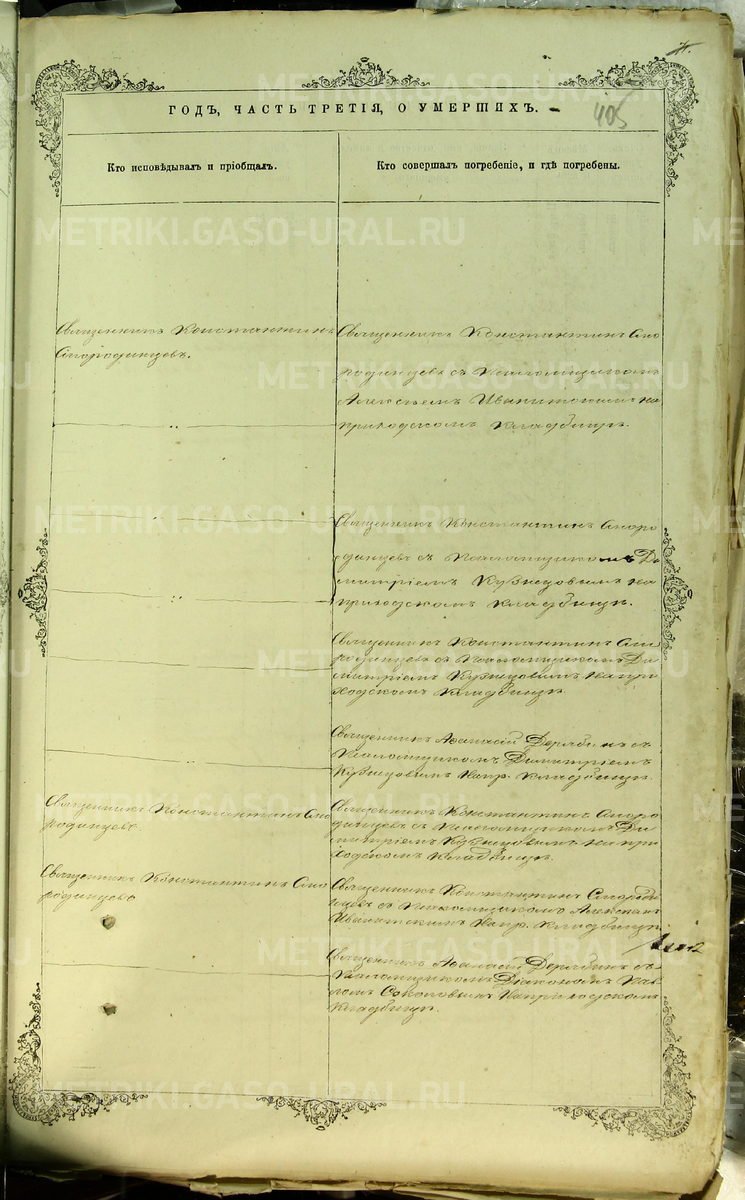 405
ГОДЪ, ЧАСТЬ ТРЕТІЯ, О УМЕРШИХЪ.
Кто исповѣдывалъ и пріобщалъ.
Кто совершалъ погребеніе, и гдѣ погребены.
Священникъ Константинъ
Смородинцевъ.
Священникъ Константинъ Смо
родинцевъ съ Псаломщикомъ
Алексѣемъ Иваницкимъ на
приходскомъ кладбищѣ.
Священникъ Константинъ Сморо
динцевъ съ Псаломщикомъ Ди
митріемъ Кузнецовымъ на
приходскомъ кладбищѣ.
Священникъ Константинъ Смо
родинцевъ съ Псаломщикомъ Ди
митріемъ Кузнецовымъ на при
ходскомъ кладбищѣ
Священникъ Аѳанасій Дерябинъ съ
Псаломщикомъ Димитріемъ
Кузнецовымъ на пр. кладбищѣ.
Священникъ Константинъ Смо
родинцевъ
Священникъ Константинъ Сморо
динцевъ съ Псаломщикомъ Ди
митріемъ Кузнецовымъ на при
ходскомъ кладбищѣ.
Священникъ Константинъ Смо
родинцевъ
Священникъ Константинъ Смороди
нцевъ съ Псаломщикомъ
на пр. кладбищѣ
Священникъ Аѳанасій Дерябинъ съ
Псаломщикомъ Діакономъ Пав
ломъ Соколовымъ на приходскомъ
кладбищѣ.
METRIKI.GASO-URAL.RU